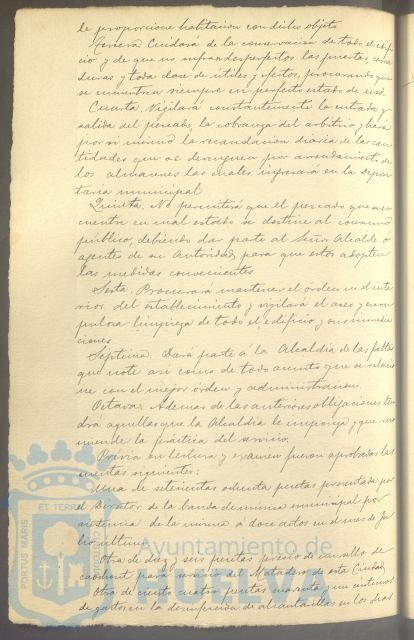 le proporcione habitacion con dicho objeto
Tercera Cuidara de la conservacion de todo el edifi-
cio y de que no sufran desperfectos las puertas, cerra
duras y toda clase de útiles y efectos, procurando que
se encuentren siempre en perfecto estado de uso.
Cuarta. Vigilará constantemente la entrada y
salida del pescado, la cobranza del arbitrio y hara
por si mismo la recaudacion diaria de las can
tidades que se devenguen por arrendamiento de
los almacenes las cuales ingresará en la Deposi
taria municipal
Quinta. No permitirá que el pescado que se en
cuentre en mal estado se destine al consumo
público, debiendo dar parte al Señor Alcalde o
agentes de su Autoridad, para que estos adopten
las medidas convenientes
Sexta. Procurará mantener el orden en el inte
rior del establecimiento y vigilará el aseo y escru
pulosa limpieza de todo el edificio y sus inmedia
ciones
Séptima. Dará parte á la Alcaldia de las faltas
que note asi como de todo asunto que se relacio
ne con el mejor órden y administracion.
Octava. Ademas de las anteriores obligaciones ten
drá aquellas que la Alcaldia le imponga y que reco
miende la práctica del servicio.
Previa su lectura y examen fueron aprobadas las
cuentas siguientes:
Una de setecientas ochenta pesetas presentada por
el Director de la banda de música municipal por
asistencia de la misma á doce actos en el mes de Ju
lio último
Otra de diez y seis pesetas precio de un sello de
caoutchout para servicio del Matadero de esta Ciudad
Otra de ciento cuatro pesetas noventa y un centimos
de gastos en la desinfeccion de alcantarillas en los dias
PORTUS MARIS
ET TERRAE
Ayuntamiento de